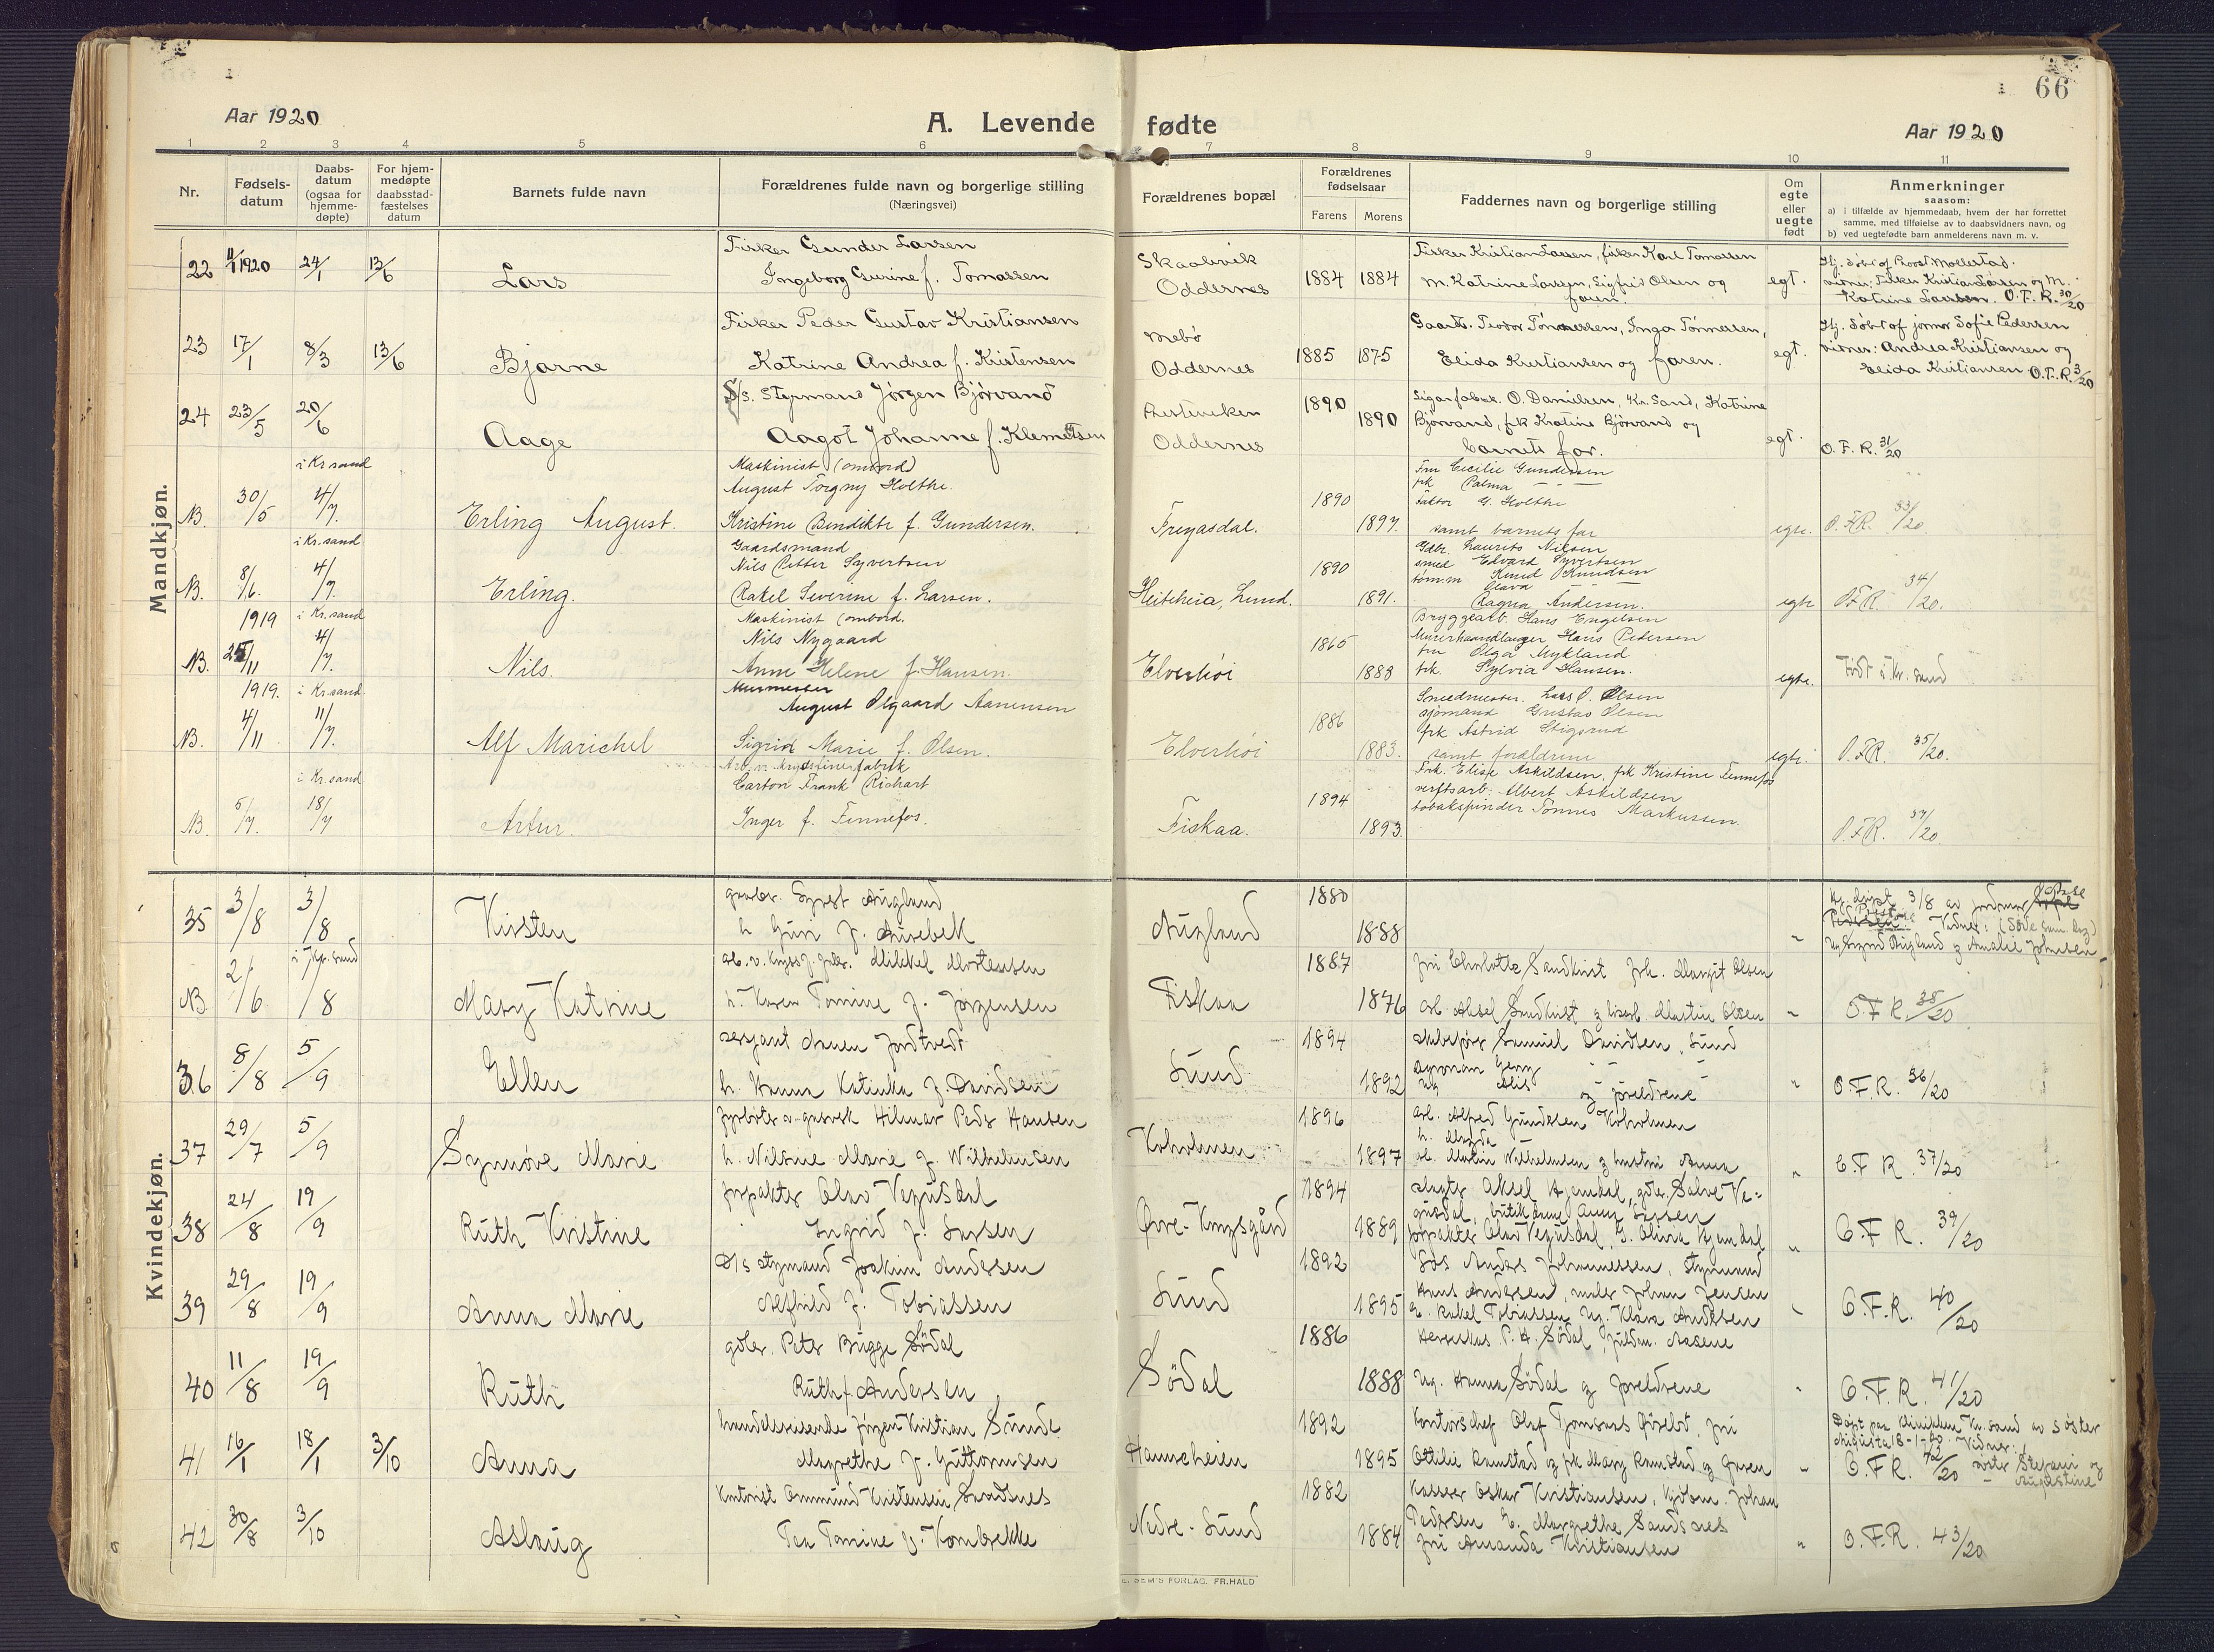 66
Aar 1920
A. Levende fødte
Aar 1920
1 2 3 4 5 6 7 8 9 10 11
Nr.
Fødsels-
datum
Daabs-
datum
(ogsaa for
hjemme-
døpte)
For hjem-
medøpte
daabsstad-
fæstelses
datum
Barnets fulde navn
Forældrenes fulde navn og borgerlige stilling
(Næringsvei)
Forældrenes bopæl
Forældrenes
fødselsaar
Farens Morens
Faddernes navn og borgerlige stilling
Om
egte
eller
uegte
født
Anmerkninger
saasom:
a) i tilfælde av hjemmedaab, hvem der har forrettet
samme, med tilføielse av to daabsvidners navn, og
b) ved uegtefødte barn anmelderens navn m. v.
Mandkjøn.
22 1920 24/1 13/6 Lars
Fisker Gunder Larsen
Ingeborg Gurine f. Tomassen
Skaalevik
Oddernes
1884 1884
Fisker Kristian Larsen, fisker Karl Tomassen
M. Katrine Larsen, Sigfrid Olsen og
faren.
egt.
Hj. døbt af Provst Mollestad.
vidner: Fisker Kristian Larsen og M.
Katrine Larsen. O.F.R. 30/20
23 17/1 8/3 13/6 Bjarne
Fisker Peder Gustav Kristiansen
Katrine Andrea f. Kristensen
Mebø
Oddernes
1885 1875
Gaardb. Teodor Tønnessen, Inga Tønnessen,
Elida Kristiansen og faren.
egt.
Hj. døbt af jormor Sofie Pedersen
vidner: Andrea Kristiansen og
Elida Kristiansen O.F.R. 3/20
24 23/5 20/6 Aage
S/s. Styrmand Jörgen Bjørvand
Aagot Johanne f. Klemetsen
Oddernes
1890 1890
Sigarfabrik. O. Danielsen, Kr. Sand, Katrine
Bjørvand, frk Kratine Bjørvand og
barnets far.
egt.
O.F.R. 31/20
NB. 30/5 i Kr.sand 4/7. Erling August.
Maskinist (ombord)
August Torgny Holthe.
Kristine Bendikte f. Gundersen.
Freyasdal.
1890 1897.
Fru Cecilie Gundersen
frk Palma — " —
faktor G. Holthe
samt barnets far
egte.
O.F.R. 33/20
NB. 8/6. i Kr.sand 4/7. Erling.
Gaardsmand
Nils Petter Syvertsen
Rakel Severine f. Larsen.
Heiteheia, Lund.
1890 1891.
Gdbr. Laurits Nilsen
smed Edvard Syvertsen
tøm.m Knud Knudsen
Ragna Andersen.
egte
O.F.R. 34/20.
NB. 1919 25/11 i Kr.sand 4/7. Nils.
Maskinist (ombord.
Nils Nygaard
Anne Helene f. Hansen.
Elverhøi
1865 1883
Bryggearb. Hans Engelsen
Murerhaandlanger Hans Pedersen
fru Olga Mykland
frk. Sylvia Hansen.
egte.
Født i Kr. sand
NB. 1919. 4/11 i Kr.sand 11/7. Alf Marichel
Murmester
August Olgaard Aanensen
Sigrid Marie f. Olsen.
Elverhøi
1886 1883.
Smedmester. Lars O. Olsen
sjømand Gustav Olsen
frk Astrid Stigsrud
samt forældrene
egte.
O.F.R. 35/20.
NB. 5/7. i Kr.sand 18/7 Artur.
Arb. v. krydsfinerfabrik
Carton Frank Richart
Inger f. Fennefos.
Fiskaa.
1894 1893.
Frk. Elise Askildsen, frk Kristine Fennefos
verftsarb. Albert Askildsen
tobakspinder Tønnes Markussen.
O.F.R. 37/20
Kvindekjøn.
35 3/8 3/8 Kirsten
gaarbr. Syvert Augland
h. Guri f. Aurebekk
Augland
1880 1888
"
NB 2/6 i Kr. sand 1/8 Mary Katrine
Mikkel Mortensen
h. Karen Tomine f. Jørgensen
Fiskaa
1887 1876
fru Charlotte Sandkvist frk. Margit Olsen
arb. Aksel Sandkvist og Martin Olsen
"
O.F.R. 38/20
36 8/8 5/9 Ellen
sergeant Anen Jordtvedt
h. Hanna Katinka f. Davidsen
Lund
1894 1892
skibsfører Samuel Davidsen, Lund
Georg " "
og foreldrene
"
O.F.R. 36/20
37 29/7 5/9 Synnøve Marie
fyrbøter Hilmar Peder Hansen
h. Nilsine Marie f. Wilhelmsen
Kokolmen
1896 1897
arb. Alfred Gundersen Kokolmen
h. Magda —
arb. Martin Wilhelmsen og hustru Anna
"
O.F.R. 37/20
38 24/8 19/9 Ruth Kristine
forpakter Olav Vegusdal
Ingrid f. Larsen
Øvre-Kongsgård
1894 1889
slagter Aksel Hjemdal, gdbr. Salve Ve-
gusdal, butikdame Anny Larsen
forpakter Olav Vegusdal, G. Olivia Hjemdal
"
O.F.R. 39/20
39 29/8 19/9 Anna Marie
D/s styrmand Joakim Andersen
Alfhild f. Tobiassen
Lund
1892 1895
Los Anders Johannessen, styrmand
Knut Andersen, maler Johan Jensen
G. Rakel Tobiassen Ug. Klara Andersen
"
O.F.R. 40/20
40 11/8 19/9 Ruth
gdbr. Peter Bugge Sødal
Ruth f. Andersen
Sødal
1886 1888
P. H. Sødal, Aasene
Ug. Hanna Sødal og foreldrene
"
O.F.R. 41/20
41 16/1 18/1 3/10 Anna
handelsreisende Jørgen Kristian Sunde
Margrethe f. Guttormsen
Hannevheien
1892 1895
Kontorchef Olaf Gjorelt, fru
Ottilie Ramstad og frk Mary Ramstad og faren
"
Døpt paa klinikken Kr.sand av søster
Augusta 18-1-20. Vidner:
O.F.R. 42/20 søster Stefani og
— Augustine
42 30/8 3/10 Aslaug
Kontorist Ommund Kristensen Sandsnes
Tea Tomine f. Kornbrekke
Nedre-Lund
1882 1884
Kasserer Oskar Kristiansen, Johan
Pedersen G. Margrethe Sandsnes
fru Amanda Kristiansen
"
O.F.R. 43/20
E. SEM'S FORLAG. FR.HALD